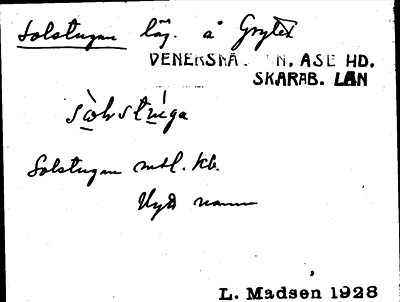 Solstugan läg. å Grytet
VENERSNÄ. N. ASE HD.
SKARAB. LÄN
sòlstúga
Solstugan mtl. kb.
Nytt namn
L. Madsen 1928